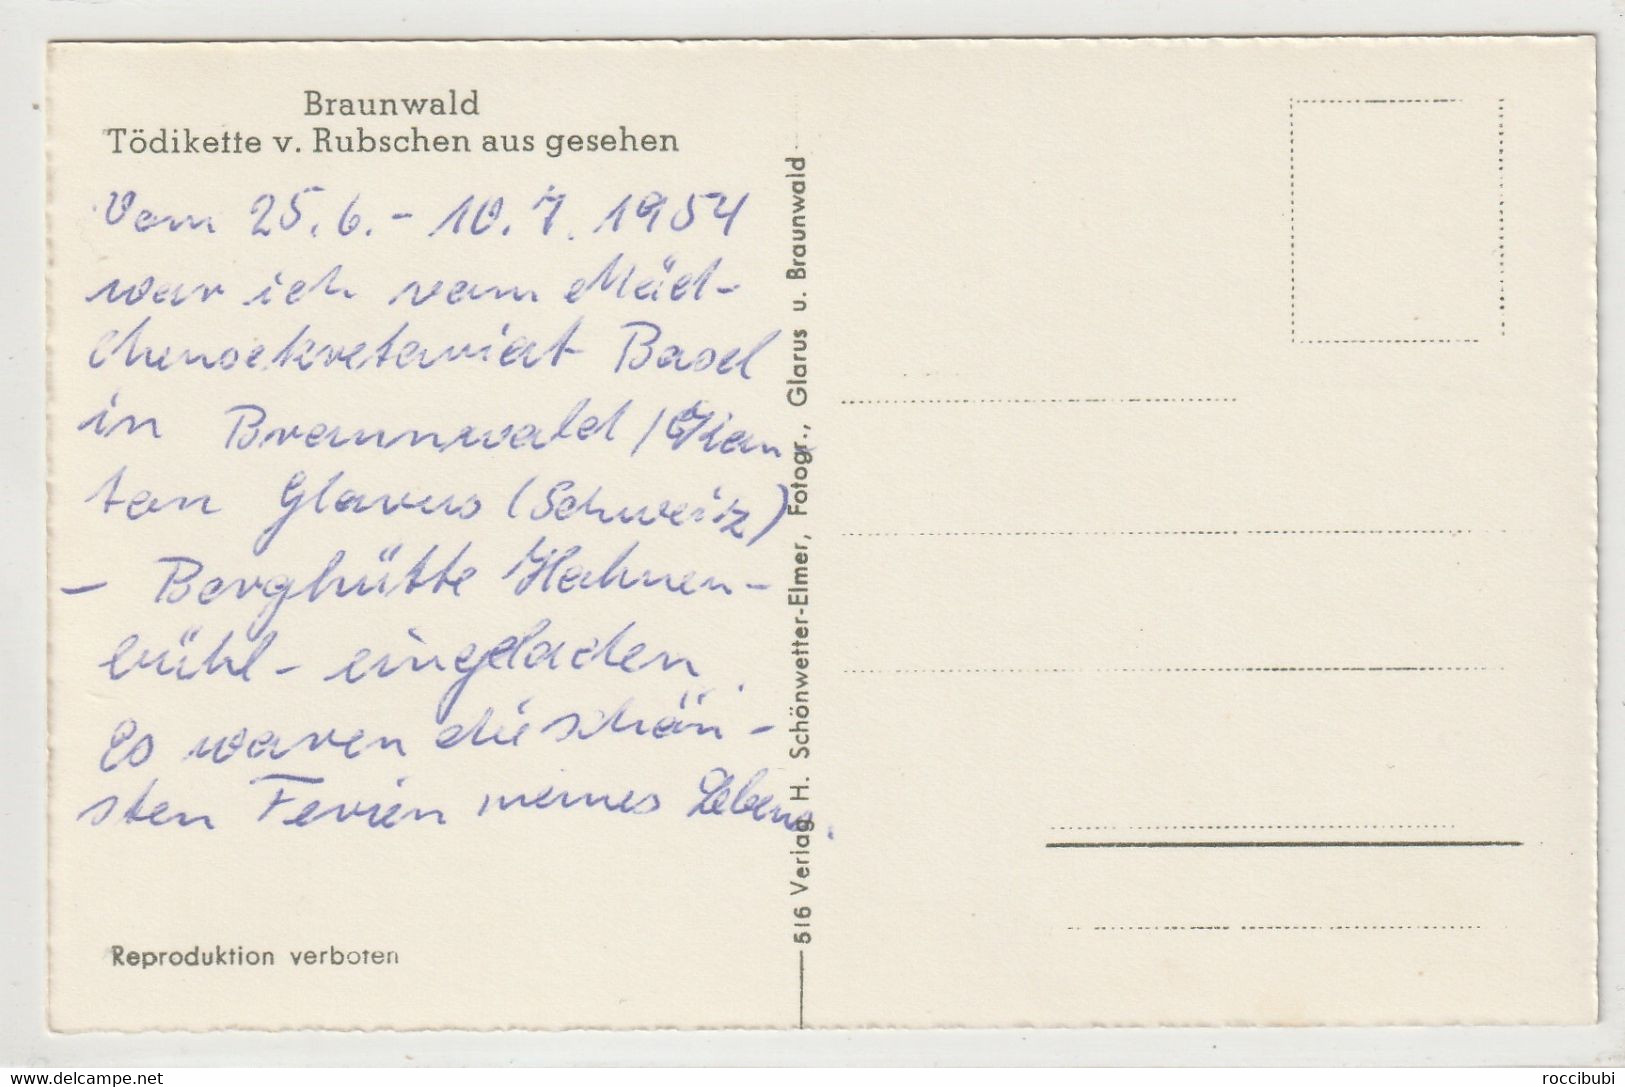 Braunwald
Tödikette v. Rubschen aus gesehen
Vom 25.6. - 10.7. 1954
war ich vom Mäd-
chensekretariat Basel
in Braunwald / Kan-
ton Glarus (Schweiz)
- Berghütte Hahnen-
bühl - eingeladen.
Es waren die schön-
sten Ferien meines Lebens.
Reproduktion verboten
516 Verlag H. Schönwetter-Elmer, Fotogr., Glarus u. Braunwald
delcampe.net
roccibubi